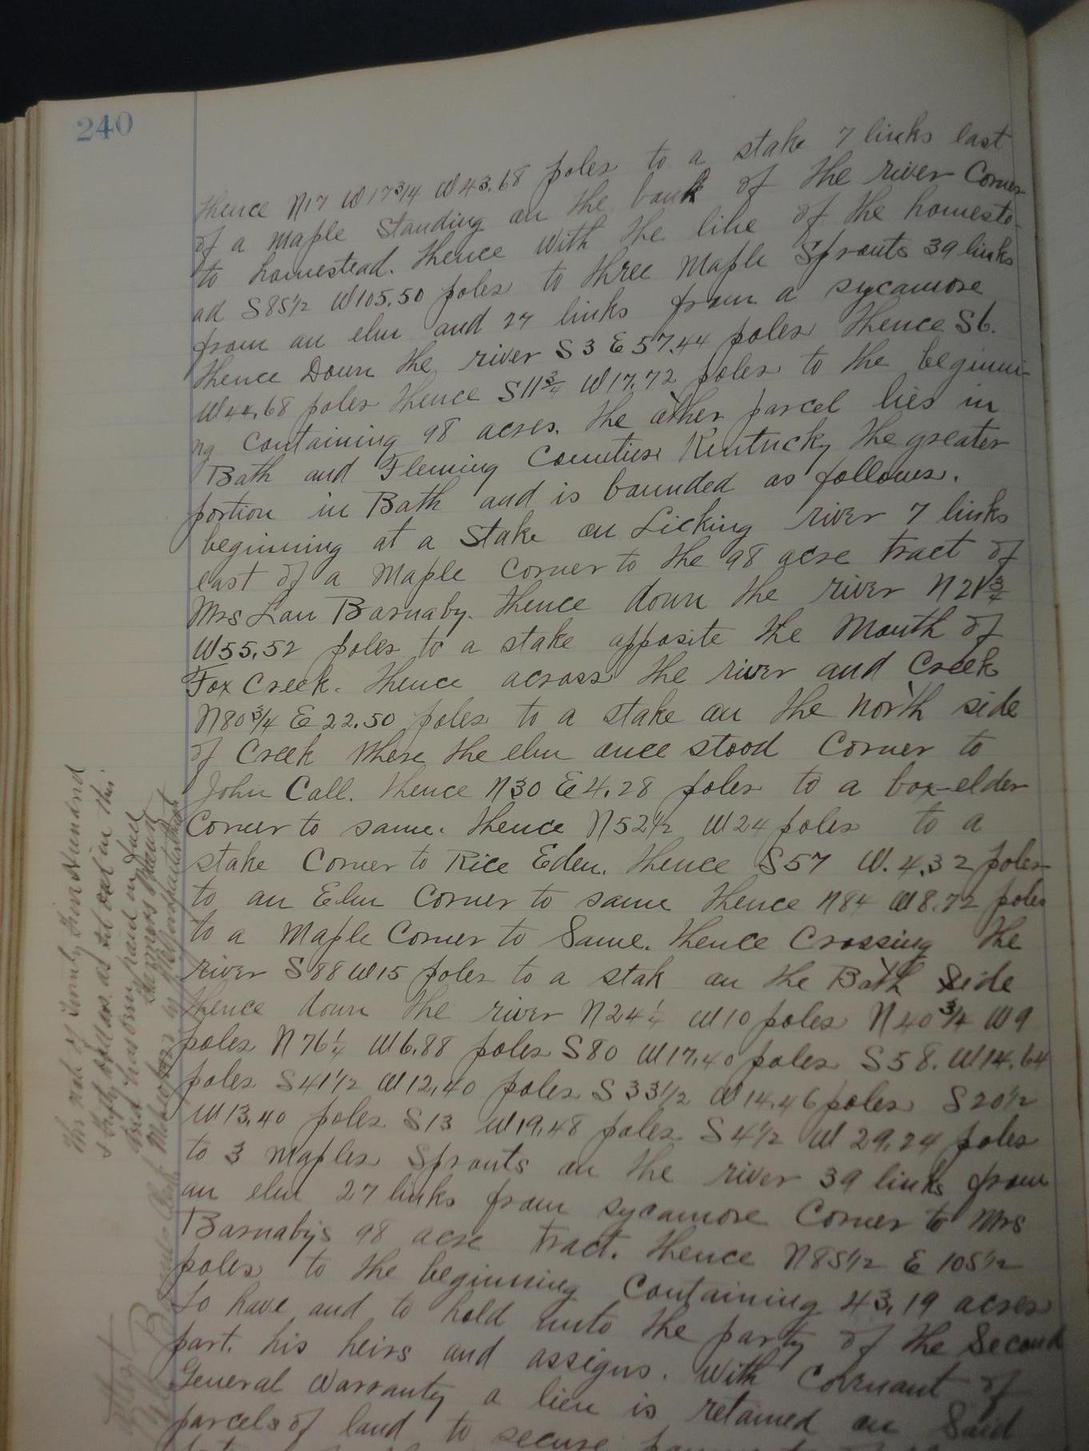 240
thence N17 W17 3/4 W43.68 poles to a stake 7 links east
of a maple standing on the bank of the river Corner
to homestead. thence with the line of the homeste-
ad S85 1/2 W105.50 poles to three maple Sprouts 39 links
from an elm and 27 links from a sycamore
thence Down the river S3 E57.44 poles thence S6.
W44.68 poles thence S11 3/4 W17.72 poles to the beginni-
ng Containing 98 acres. the other parcel lies in
Bath and Fleming Counties Kentucky the greater
portion in Bath and is bounded as follows.
beginning at a Stake on Licking river 7 links
east of a maple Corner to the 98 acre tract of
Mrs Lou Barnaby. thence down the river N21 3/4
W55.52 poles to a stake opposite the Mouth of
Fox Creek. thence across the river and Creek
N80 3/4 E22.50 poles to a stake on the north side
of Creek where the elm once stood Corner to
John Call. thence N30 E4.28 poles to a box-elder
Corner to same. thence N52 1/2 W24 poles to a
stake Corner to Rice Eden. thence S57 W.4.32 poles
to an Elm Corner to same thence N84 W8.72 poles
to a Maple Corner to Same. thence Crossing the
river S88 W15 poles to a stak on the Bath Side
thence down the river N24 1/4 W10 poles N40 3/4 W9
poles N76 1/4 W6.88 poles S80 W17.40 poles S58. W14.64
poles S41 1/2 W12.40 poles S33 1/2 W14.46 poles S20 1/2
W13.40 poles S13 W19.48 poles S4 1/2 W29.24 poles
to 3 maples Sprouts on the river 39 links from
an elm 27 links from sycamore Corner to Mrs
Barnaby's 98 acre tract. thence N85 1/2 E 105 1/2
poles to the beginning Containing 43.19 acres
To have and to hold unto the party of the Second
part. his heirs and assigns. With Covenant of
General Warranty a lien is retained on Said
parcels of land to secure
This note of Twenty Five Hundred
& Fifty Dollars as set out in this
Deed has been paid in full